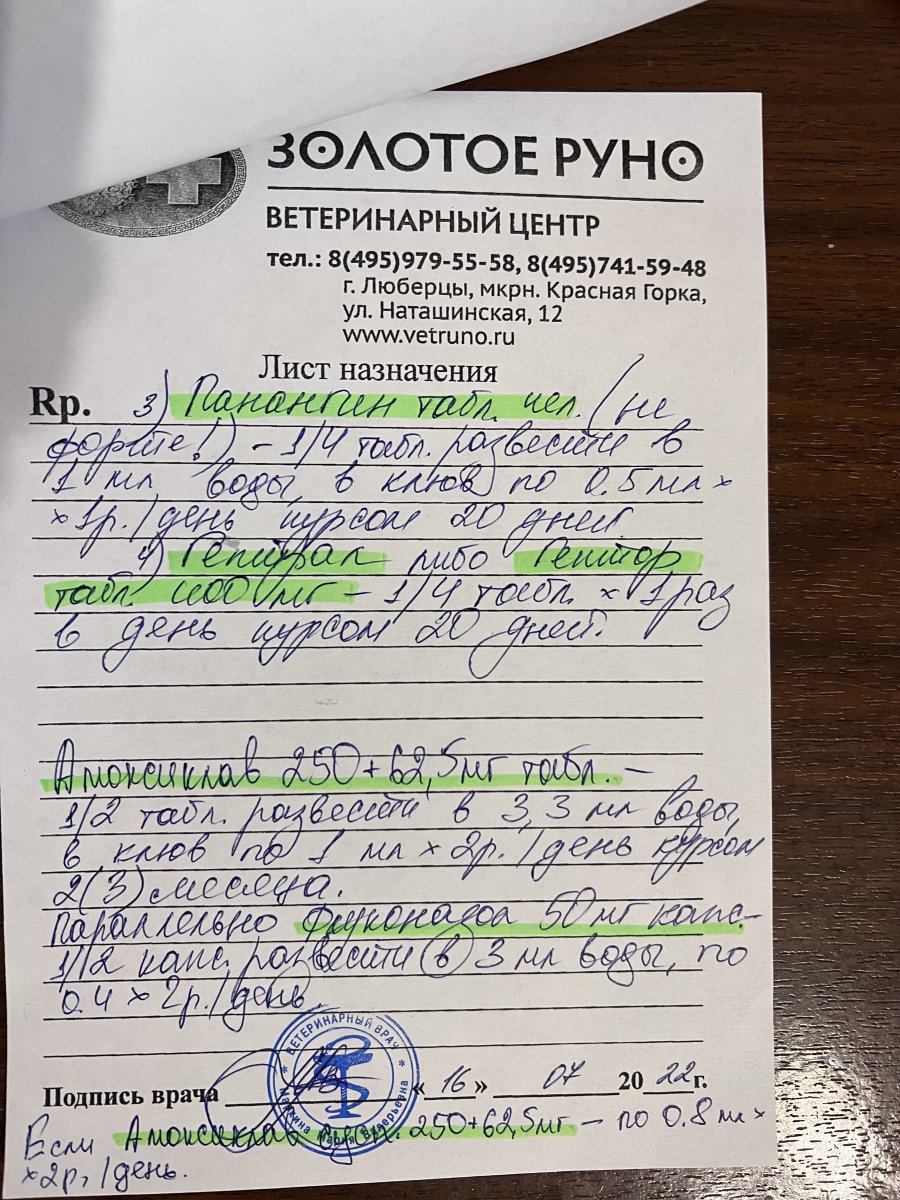 ЗОЛОТОЕ РУНО
ВЕТЕРИНАРНЫЙ ЦЕНТР
тел.: 8(495)979-55-58, 8(495)741-59-48
г. Люберцы, мкрн. Красная Горка,
ул. Наташинская, 12
www.vetruno.ru
Лист назначения
Rp. 3) Панангин табл. чел. (не
форте!) – 1/4 табл. развести в
1 мл воды, в клюв по 0.5 мл ×
× 1р./день курсом 20 дней
4) Гептрал либо Гептор
табл. 400 мг – 1/4 табл. × 1 раз
в день курсом 20 дней.
Амоксиклав 250+62,5мг табл. –
1/2 табл. развести в 3,3 мл воды,
в клюв по 1 мл × 2р./день курсом
2(3) месяца.
Параллельно Флуконазол 50мг капс.–
1/12 капс. развести в 3 мл воды, по
0.4 × 2р./день.
ВЕТЕРИНАРНЫЙ ВРАЧ
Мария Валерьевна
Подпись врача «16» 07 2022г.
Если Амоксиклав 250+62,5мг – по 0.8 мл ×
×2р./день.